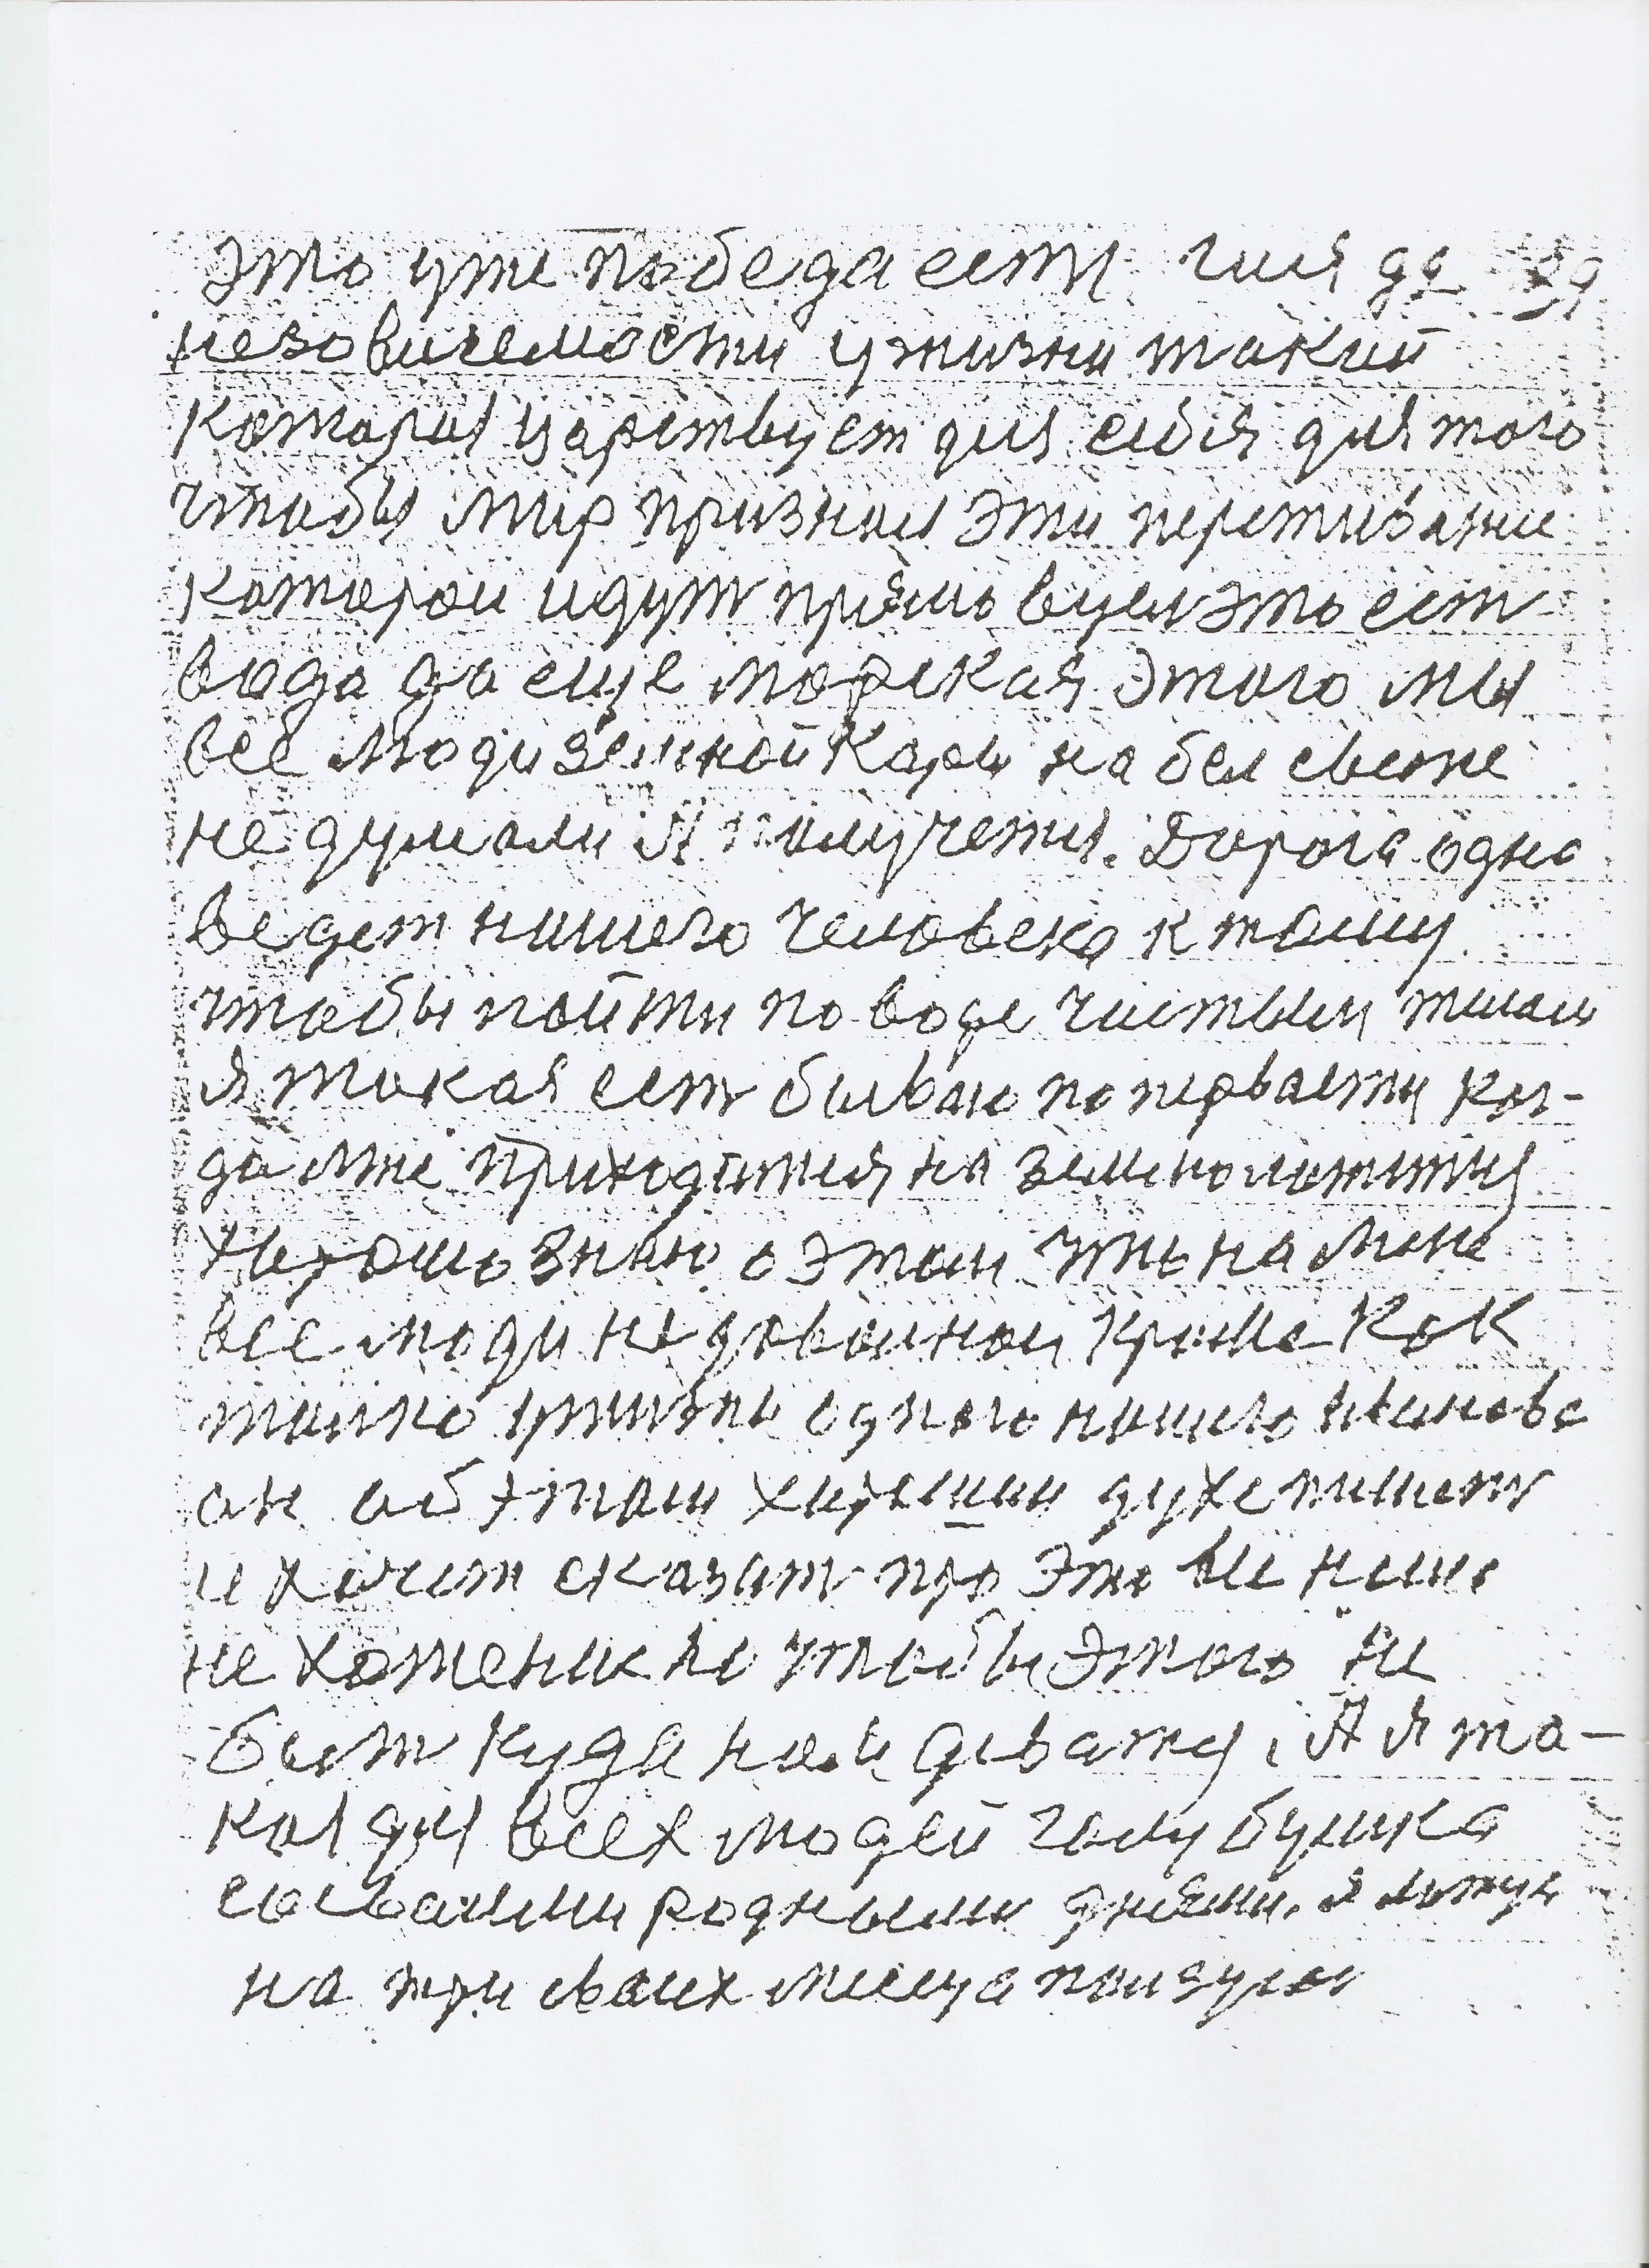 Это уже победа есть гися да 29
незовисемости у жизни такий
которыя царствует для сибя для того
чтобы мир признал эти переживание
которои идут прямо вуси это ест
вода да еще морская. Этого мы
все люди земной кары на бел свете
не думали и получеть. Дорога одна
ведет нашего человека к тому
чтобы пойти по воде чистым телам
я такая ест бываю по первасти ког-
да мне приходится на земно
хирошо знаю о этом что на мене
все люди не давольнои кроме как
толко жизнь одного нашего Иванова
он об этом хирошим духе пишет
и хочет сказат про это все наше
не хотение но чтобы этого не
быт куда неи диватся. А я та-
кая для всех людей голубушка
со своими родными днями. я
на три своих месеца